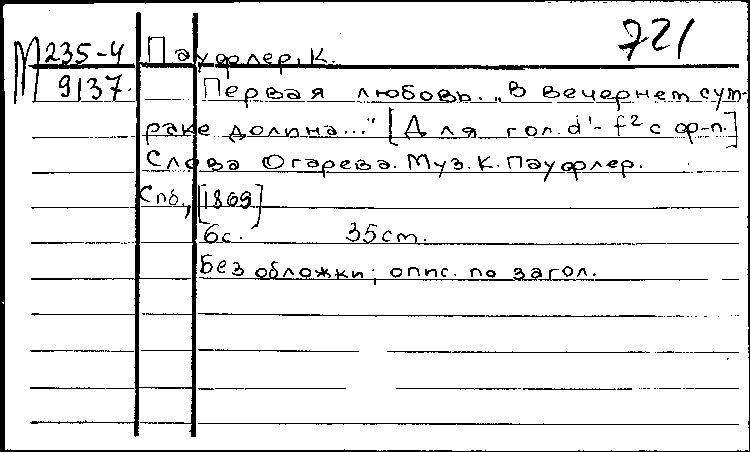 721
М 235-4 Пауфлер, К.
9137. Первая любовь. „В вечернем сум-
раке долина..." [Для гол. d¹-f² с ф-п.]
Слова Огарева. Муз. К. Пауфлер.
Спб., [1869]
6с. 35cm.
Без обложки; опис. по загол.